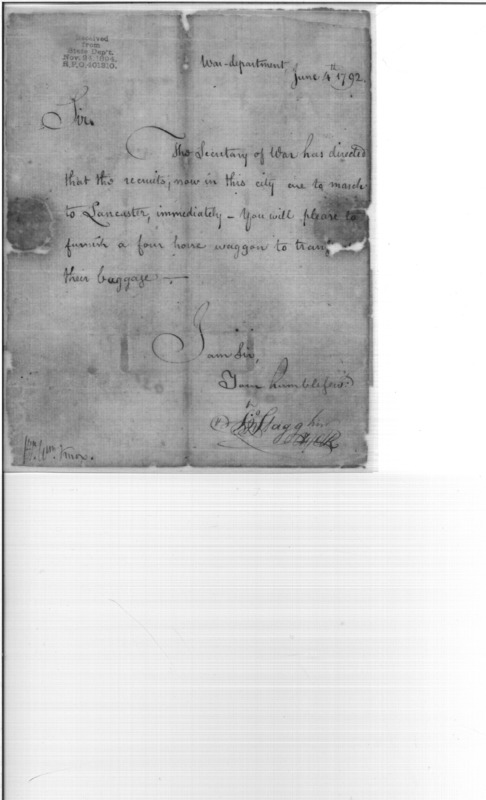 Received
from
State Dep't.
Nov. 24 1894.
War-department,
June 4th 1792.
Sir,
The Secretary of War has directed
that the recruits, now in this city are to march
to Lancaster, immediately - You will please to
furnish a four horse waggon to
their baggage -
I am Sir,
Your humble Servt
Jno Stagg Junr
Wm. Knox.